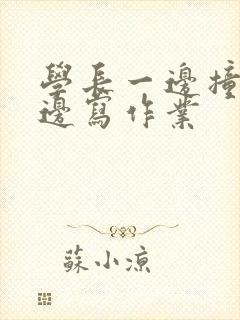 學長一邊撞
邊寫作業
蘇小涼